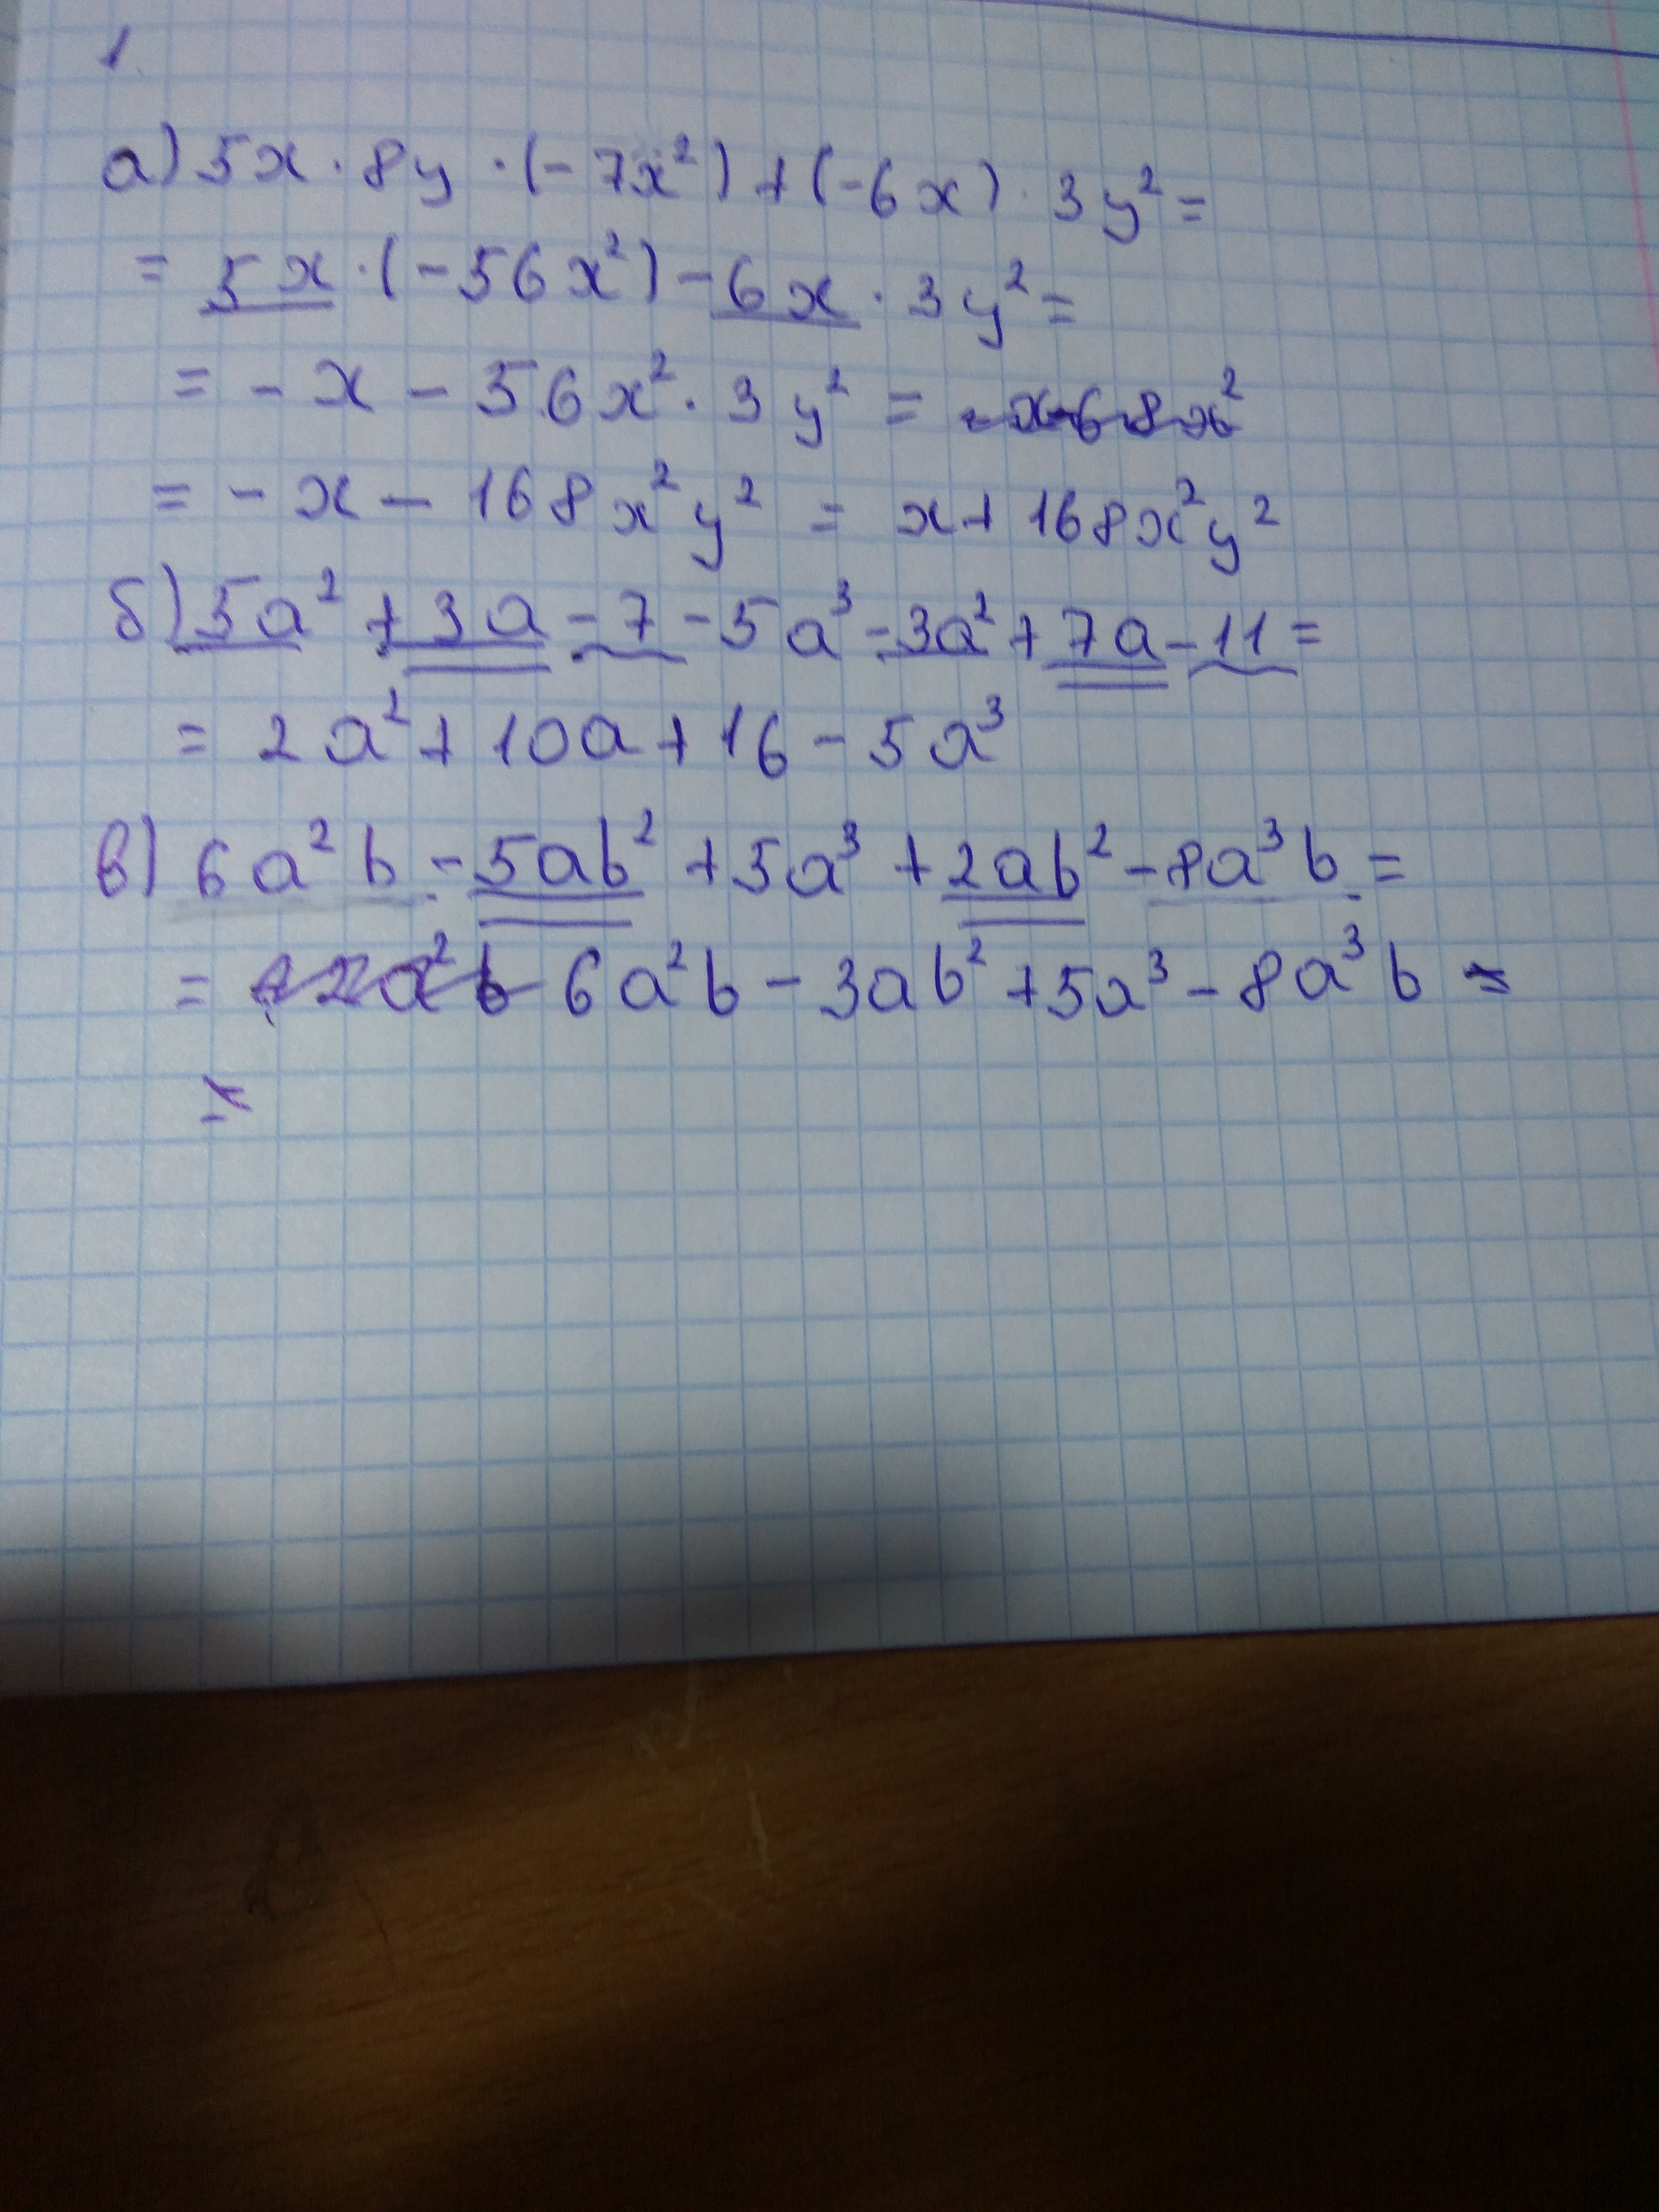 1.
а) 5x · 8y · (-7x²) + (-6x) · 3y² =
= 5x · (-56x²) - 6x · 3y² =
= - x - 56x² · 3y² =
= - x - 168x²y² = x + 168x²y²
б) 5a² + 3a - 7 - 5a³ - 3a² + 7a - 11 =
= 2a² + 10a + 16 - 5a³
в) 6a²b - 5ab² + 5a³ + 2ab² - 8a³b =
= 6a²b - 3ab² + 5a³ - 8a³b